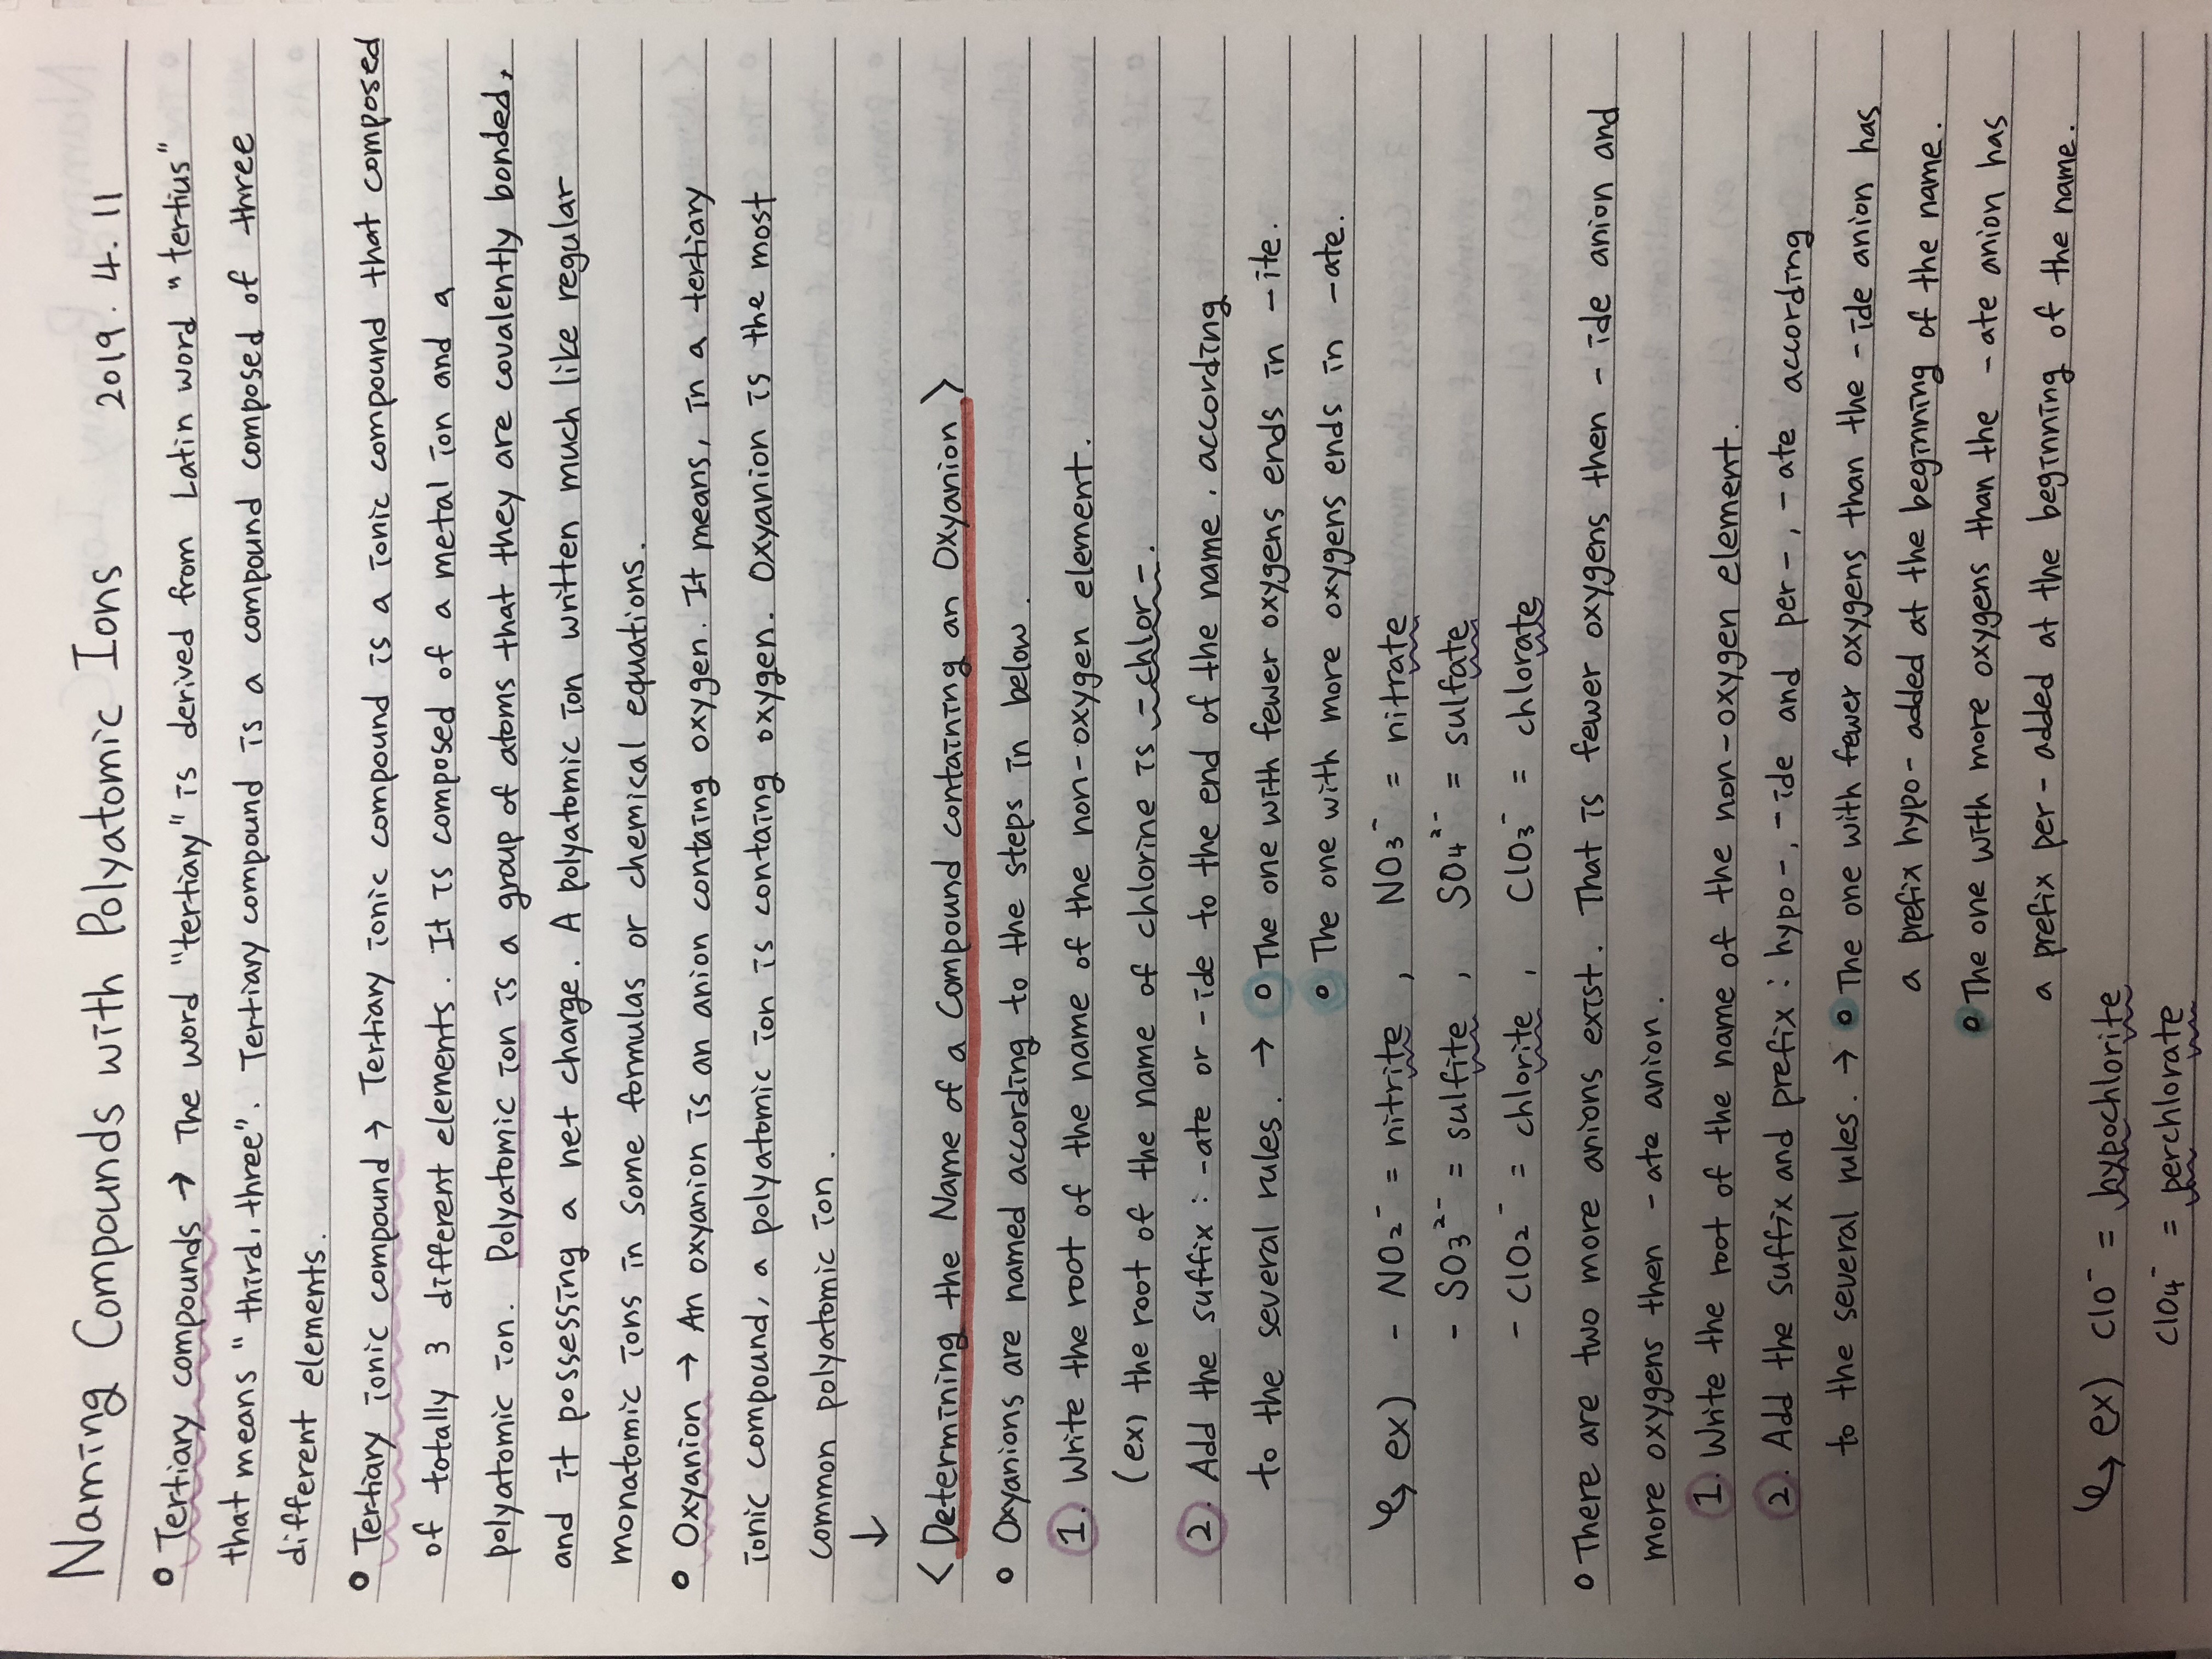 Naming Compounds with Polyatomic Ions 2019. 4. 11
Tertiary compounds → The word "tertiary" is derived from Latin word "tertius"
that means "third, three". Tertiary compound is a compound composed of three
different elements.
Tertiary ionic compound → Tertiary ionic compound is a ionic compound that composed
of totally 3 different elements. It is composed of a metal ion and a
polyatomic ion. Polyatomic ion is a group of atoms that they are covalently bonded,
and it possessing a net charge. A polyatomic ion written much like regular
monatomic ions in some formulas or chemical equations.
Oxyanion → An oxyanion is an anion containg oxygen. It means, in a tertiary
ionic compound, a polyatomic ion is containg oxygen. Oxyanion is the most
common polyatomic ion.
↓
<Determining the Name of a Compound containing an Oxyanion>
Oxyanions are named according to the steps in below.
1. Write the root of the name of the non-oxygen element.
(ex) the root of the name of chlorine is -chlor-.
2. Add the suffix : -ate or -ide to the end of the name. according
to the several rules. → The one with fewer oxygens ends in -ite.
The one with more oxygens ends in -ate.
↳ ex) - NO₂⁻ = nitrite , NO₃⁻ = nitrate
- SO₃²⁻ = sulfite , SO₄²⁻ = sulfate
- ClO₂⁻ = chlorite , ClO₃⁻ = chlorate
There are two more anions exist. That is fewer oxygens then -ide anion and
more oxygens then -ate anion.
1. Write the root of the name of the non-oxygen element.
2. Add the suffix and prefix : hypo-, -ide and per-, -ate according
to the several rules. → The one with fewer oxygens than the -ide anion has
a prefix hypo- added at the beginning of the name.
The one with more oxygens than the -ate anion has
a prefix per- added at the beginning of the name.
↳ ex) ClO⁻ = hypochlorite
ClO₄⁻ = perchlorate